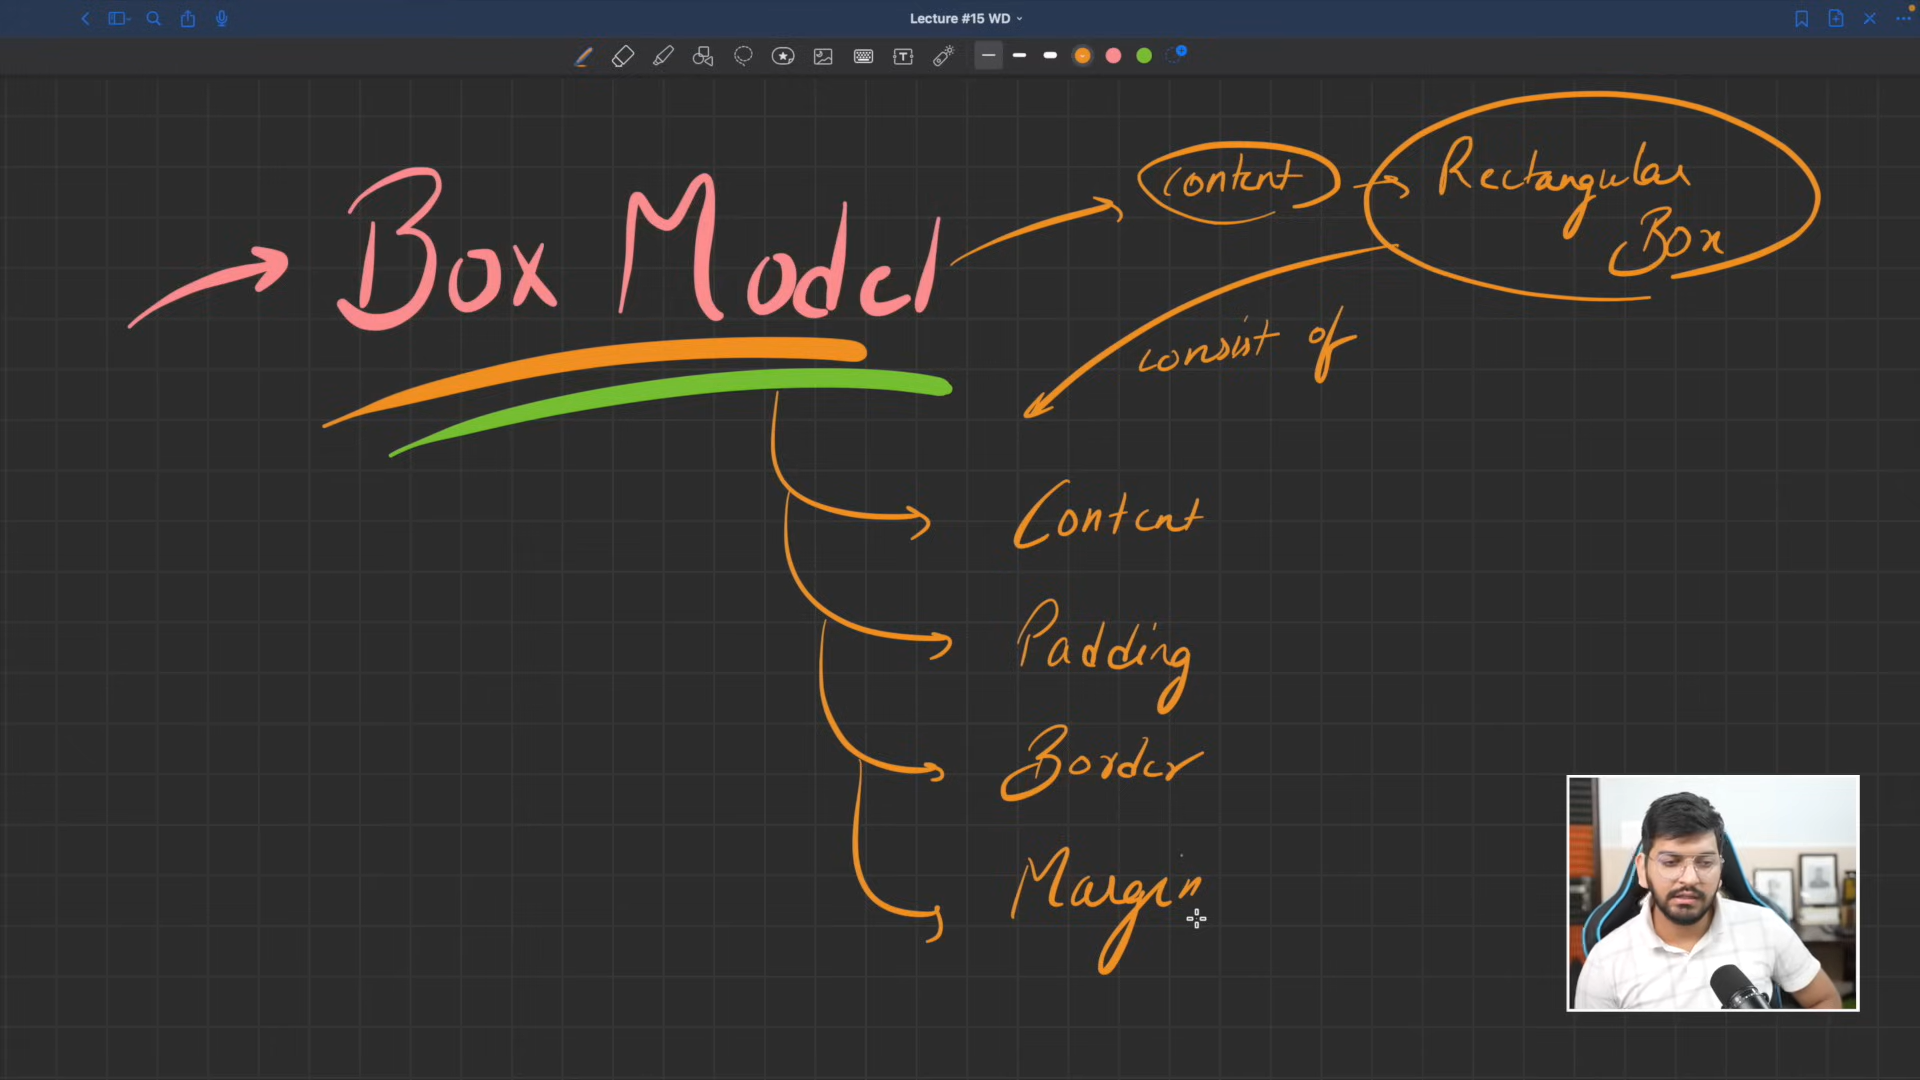 Lecture #15 WD
Box Model
content → Rectangular
Box
consist of
Content
Padding
Border
Margin